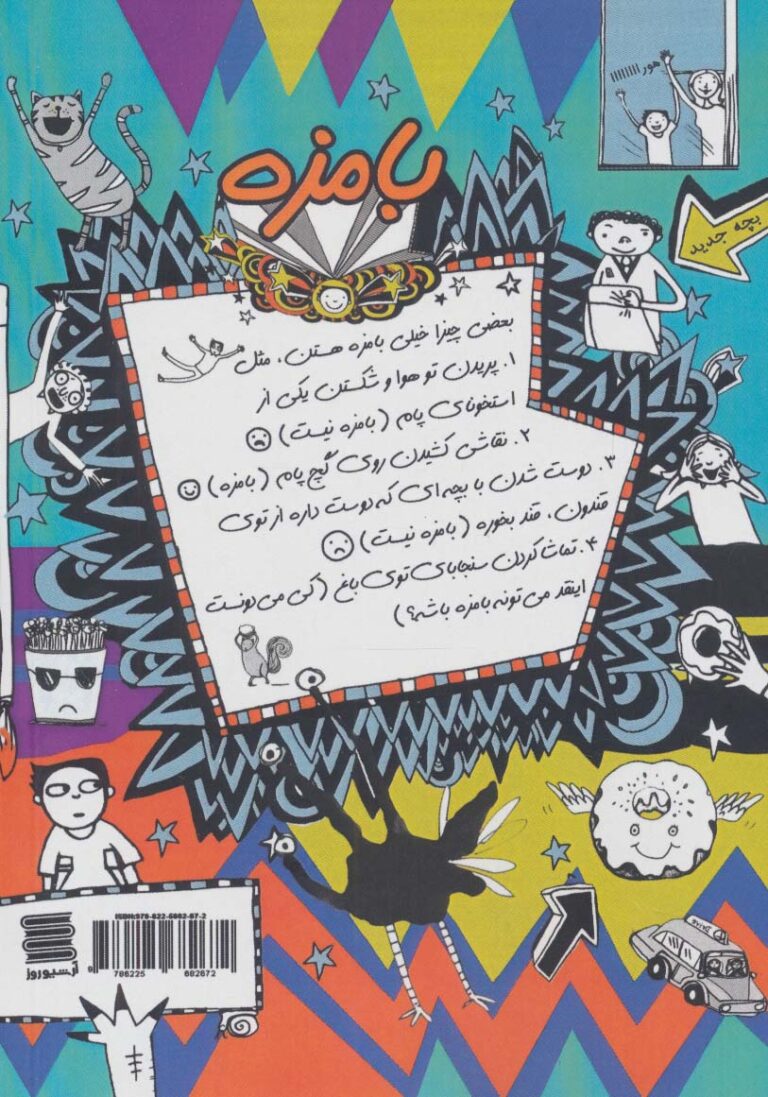 هورااااااا
بچه جدید
بامزه
بعضی چیزا خیلی بامزه هستن، مثل
۱. پریدن تو هوا و شکستن یکی از
استخونای پام (بامزه نیست)
۲. نقاشی کشیدن روی گچ پام (بامزه)
۳. دوست شدن با بچه‌ای که دوست داره از توی
قندون، قند بخوره (بامزه نیست)
۴. تماشا کردن سنجابای توی باغ (کی می‌دونست
اینقد می‌تونه بامزه باشه؟)
ISBN:978-622-5602-87-2
9 786225 602872
آرسیو روز